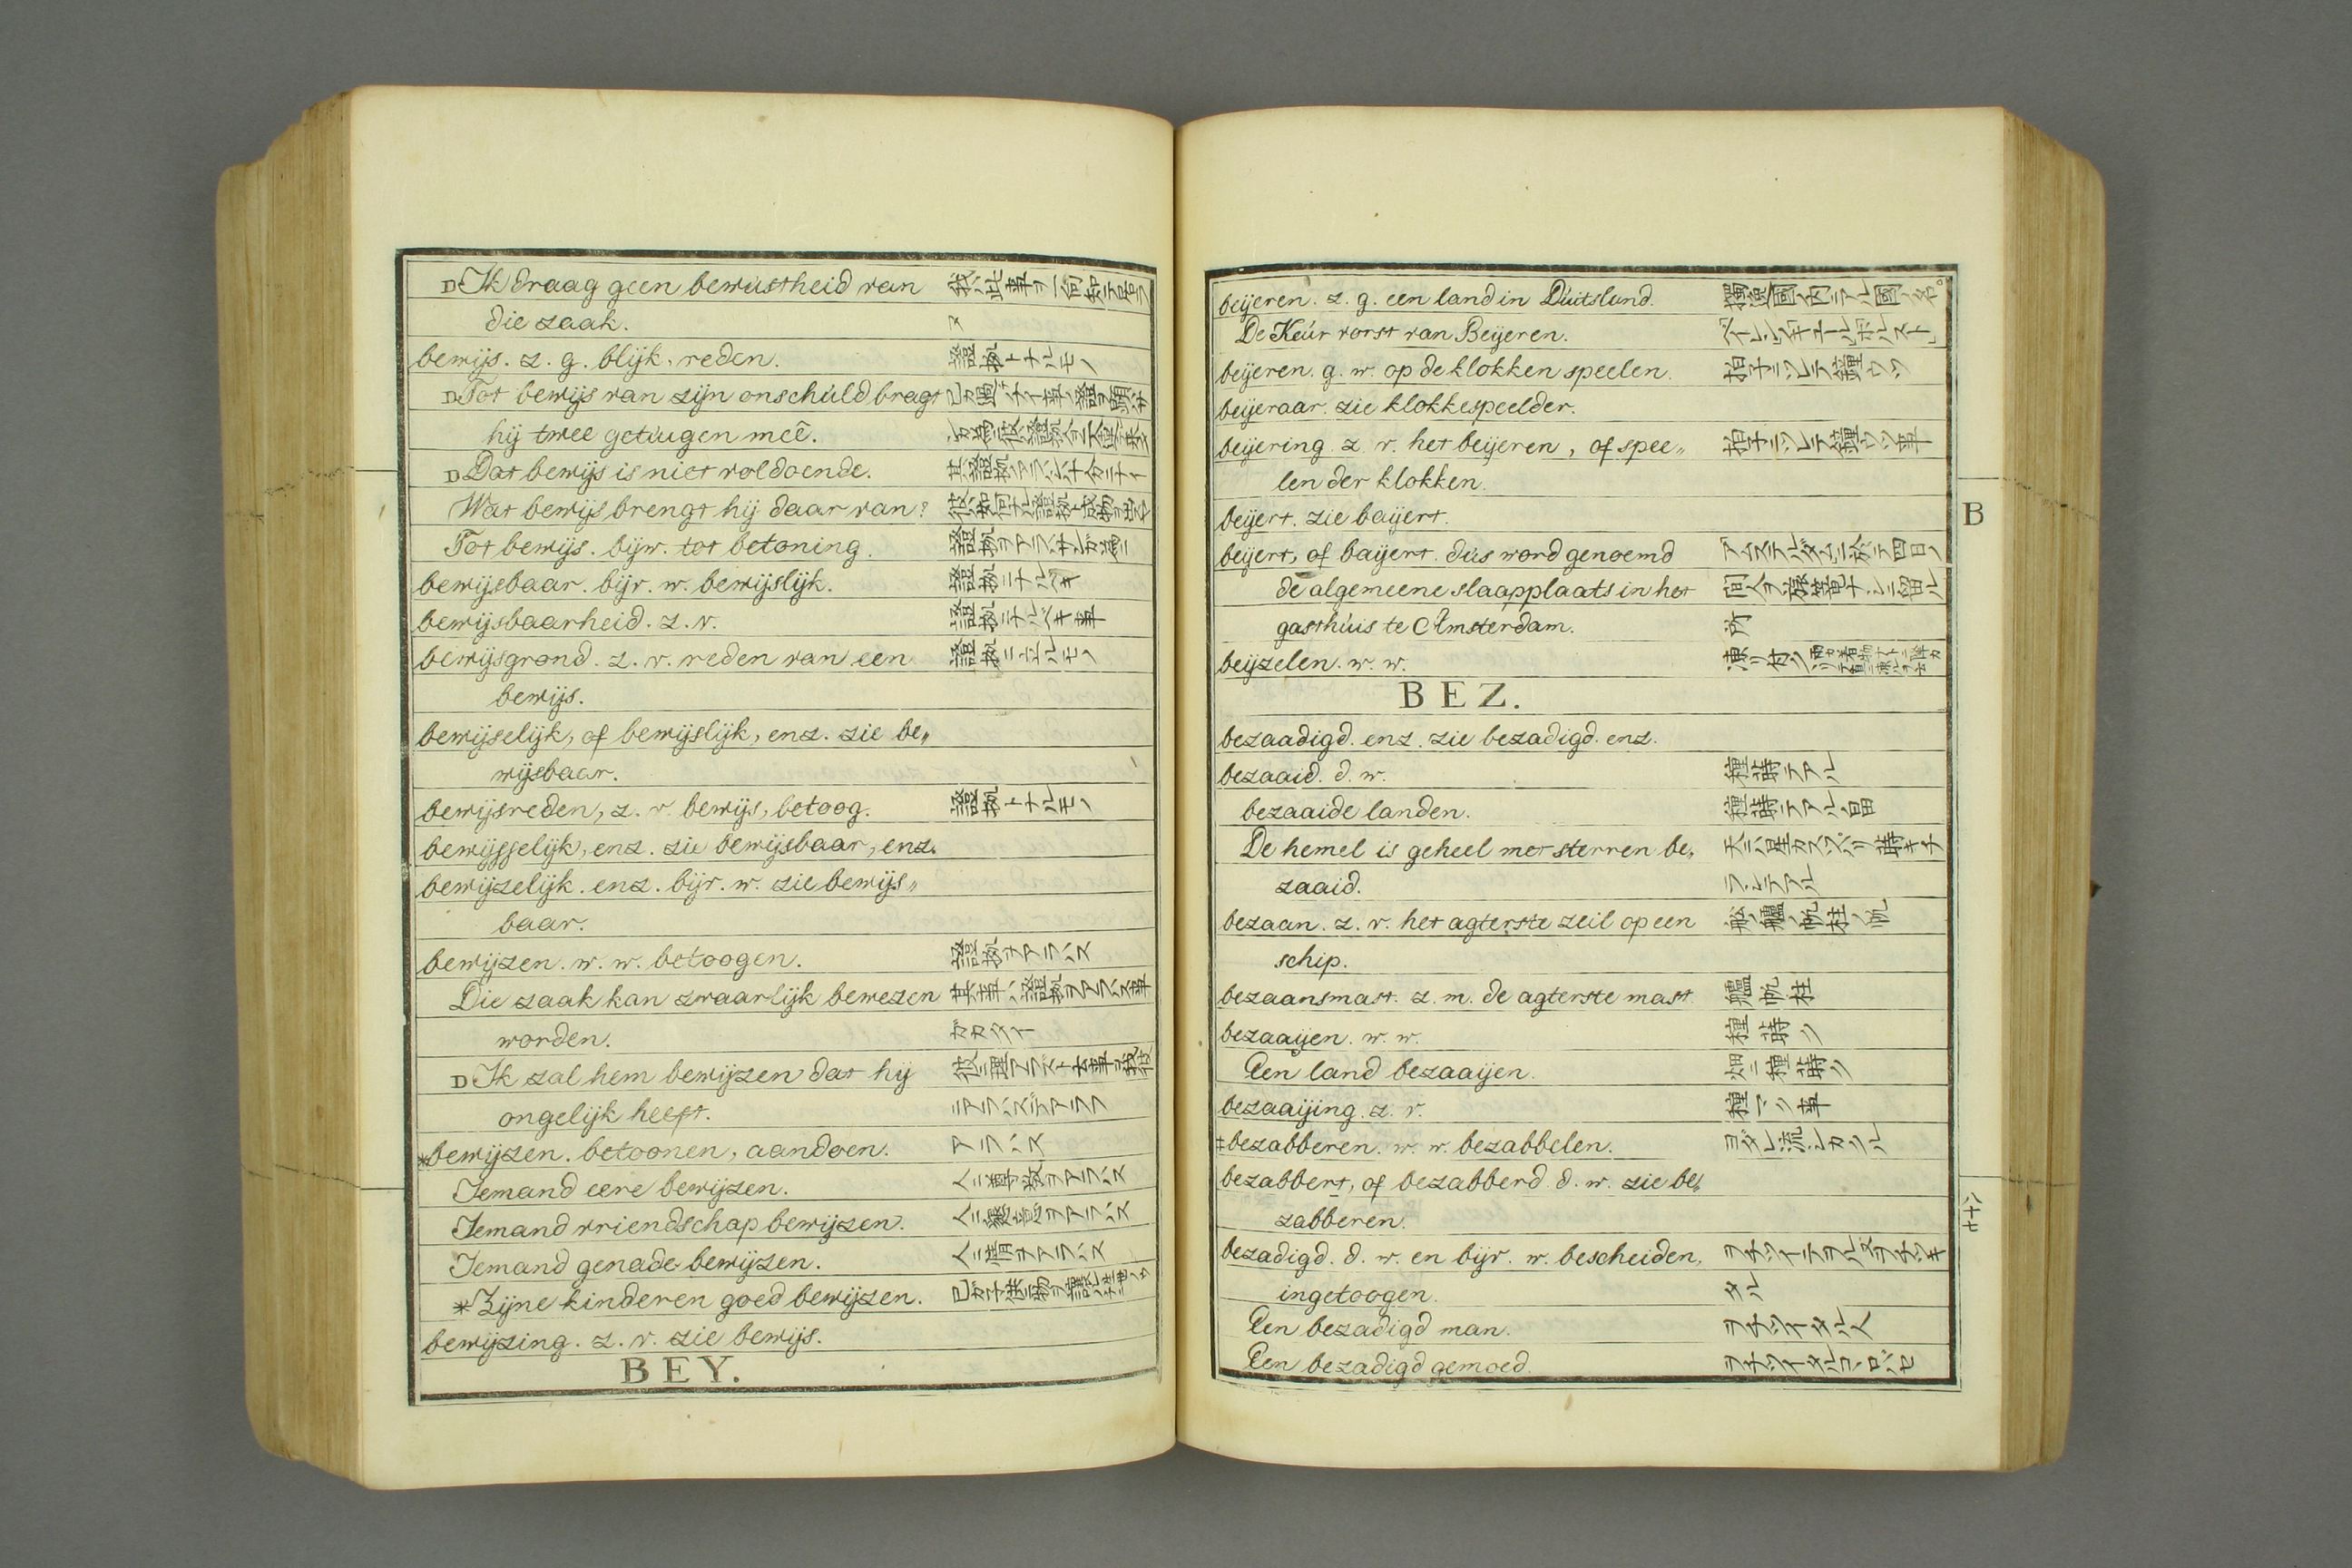 D Ik draag geen bewustheid van 我此事ヲ一向知テ居ラ
die zaak. ヌ
bewijs. z. g. blijk. reden. 證拠トナルモノ
D Tot bewijs van zijn onschuld bragt
hij twee getuugen meê.
D Dat bewijs is niet voldoende.
Wat bewijs brengt hij daar van?
Tot bewijs. bijw. tot betoning. 證拠ヲアラハサンガ為ニ
bewijsbaar. bijv. w. bewijslijk. 證拠ニナルベキ
bewijsbaarheid. z. v. 證拠ニナルベキ事
bewijsgrond. z. v. reden van een 證拠ニ立ルモノ
bewijs.
bewijselijk, of bewijslijk, enz. zie be„
wijsbaar.
bewijsreden, z. v. bewijs, betoog. 證拠トナルモノ
bewijsselijk, enz. zie bewijsbaar, enz.
bewijzelijk. enz. bijv. w. zie bewijs„
baar.
bewijzen. w. w. betoogen. 證拠ヲアラハス
Die zaak kan zwaarlijk bewezen 其事ハ證拠ヲアラハス事
worden. ガカタイ
D Ik zal hem bewijzen dat hij
ongelijk heeft. ニアラハスデアラフ
*bewijzen. betoonen, aandoen. アラハス
Iemand eere bewijzen. 人ニ尊敬ヲアラハス
Iemand vriendschap bewijzen. 人ニ懇意ヲアラハス
Iemand genade bewijzen. 人ニ情ヲアラハス
*Zijne kinderen goed bewijzen.
bewijzing. z. v. zie bewijs.
BEY.
beijeren. z. g. een land in Duitsland. 獨逸國ノ内ニアル國ノ名。
De Keur vorst van Beijeren.
beijeren. g. w. op de klokken speelen. 拍子ニツレテ鐘ウツ
beijeraar. zie klokkespeelder.
beijering. z. v. het beijeren, of spee„ 拍子ニツレテ鐘ウツ事
len der klokken.
beijert. zie baijert.
beijert, of baijert. dus word genoemd アムステルダムニ於テ四日ノ
de algemeene slaapplaats in het
gasthuis te Amsterdam. 所
beijzelen. w. w.
BEZ.
bezaadigd. enz. zie bezadigd. enz.
bezaaid. d. w.種蒔テアル
bezaaide landen. 種蒔テアル畠
De hemel is geheel met sterren be„
zaaid. ラシテアル
bezaan. z. v. het agterste zeil op een 舩ノ艫ノ帆柱ノ帆
schip.
bezaansmast. z. m. de agterste mast. 艫帆柱
bezaaijen. w. w. 種蒔ク
Een land bezaaijen. 畑ニ種蒔ク
bezaaijing. z. v. 種マク事
‡bezabberen. w. w. bezabbelen. ヨダレ流シカクル
bezabbert, of bezabberd. d. w. zie be„
zabberen.
bezadigd. d. w. en bijv. w. bescheiden, ヲチツイテヲル又ヲチツキ
ingetoogen. タル
Een bezadigd man. ヲチツイタル人
Een bezadigd gemoed.
B